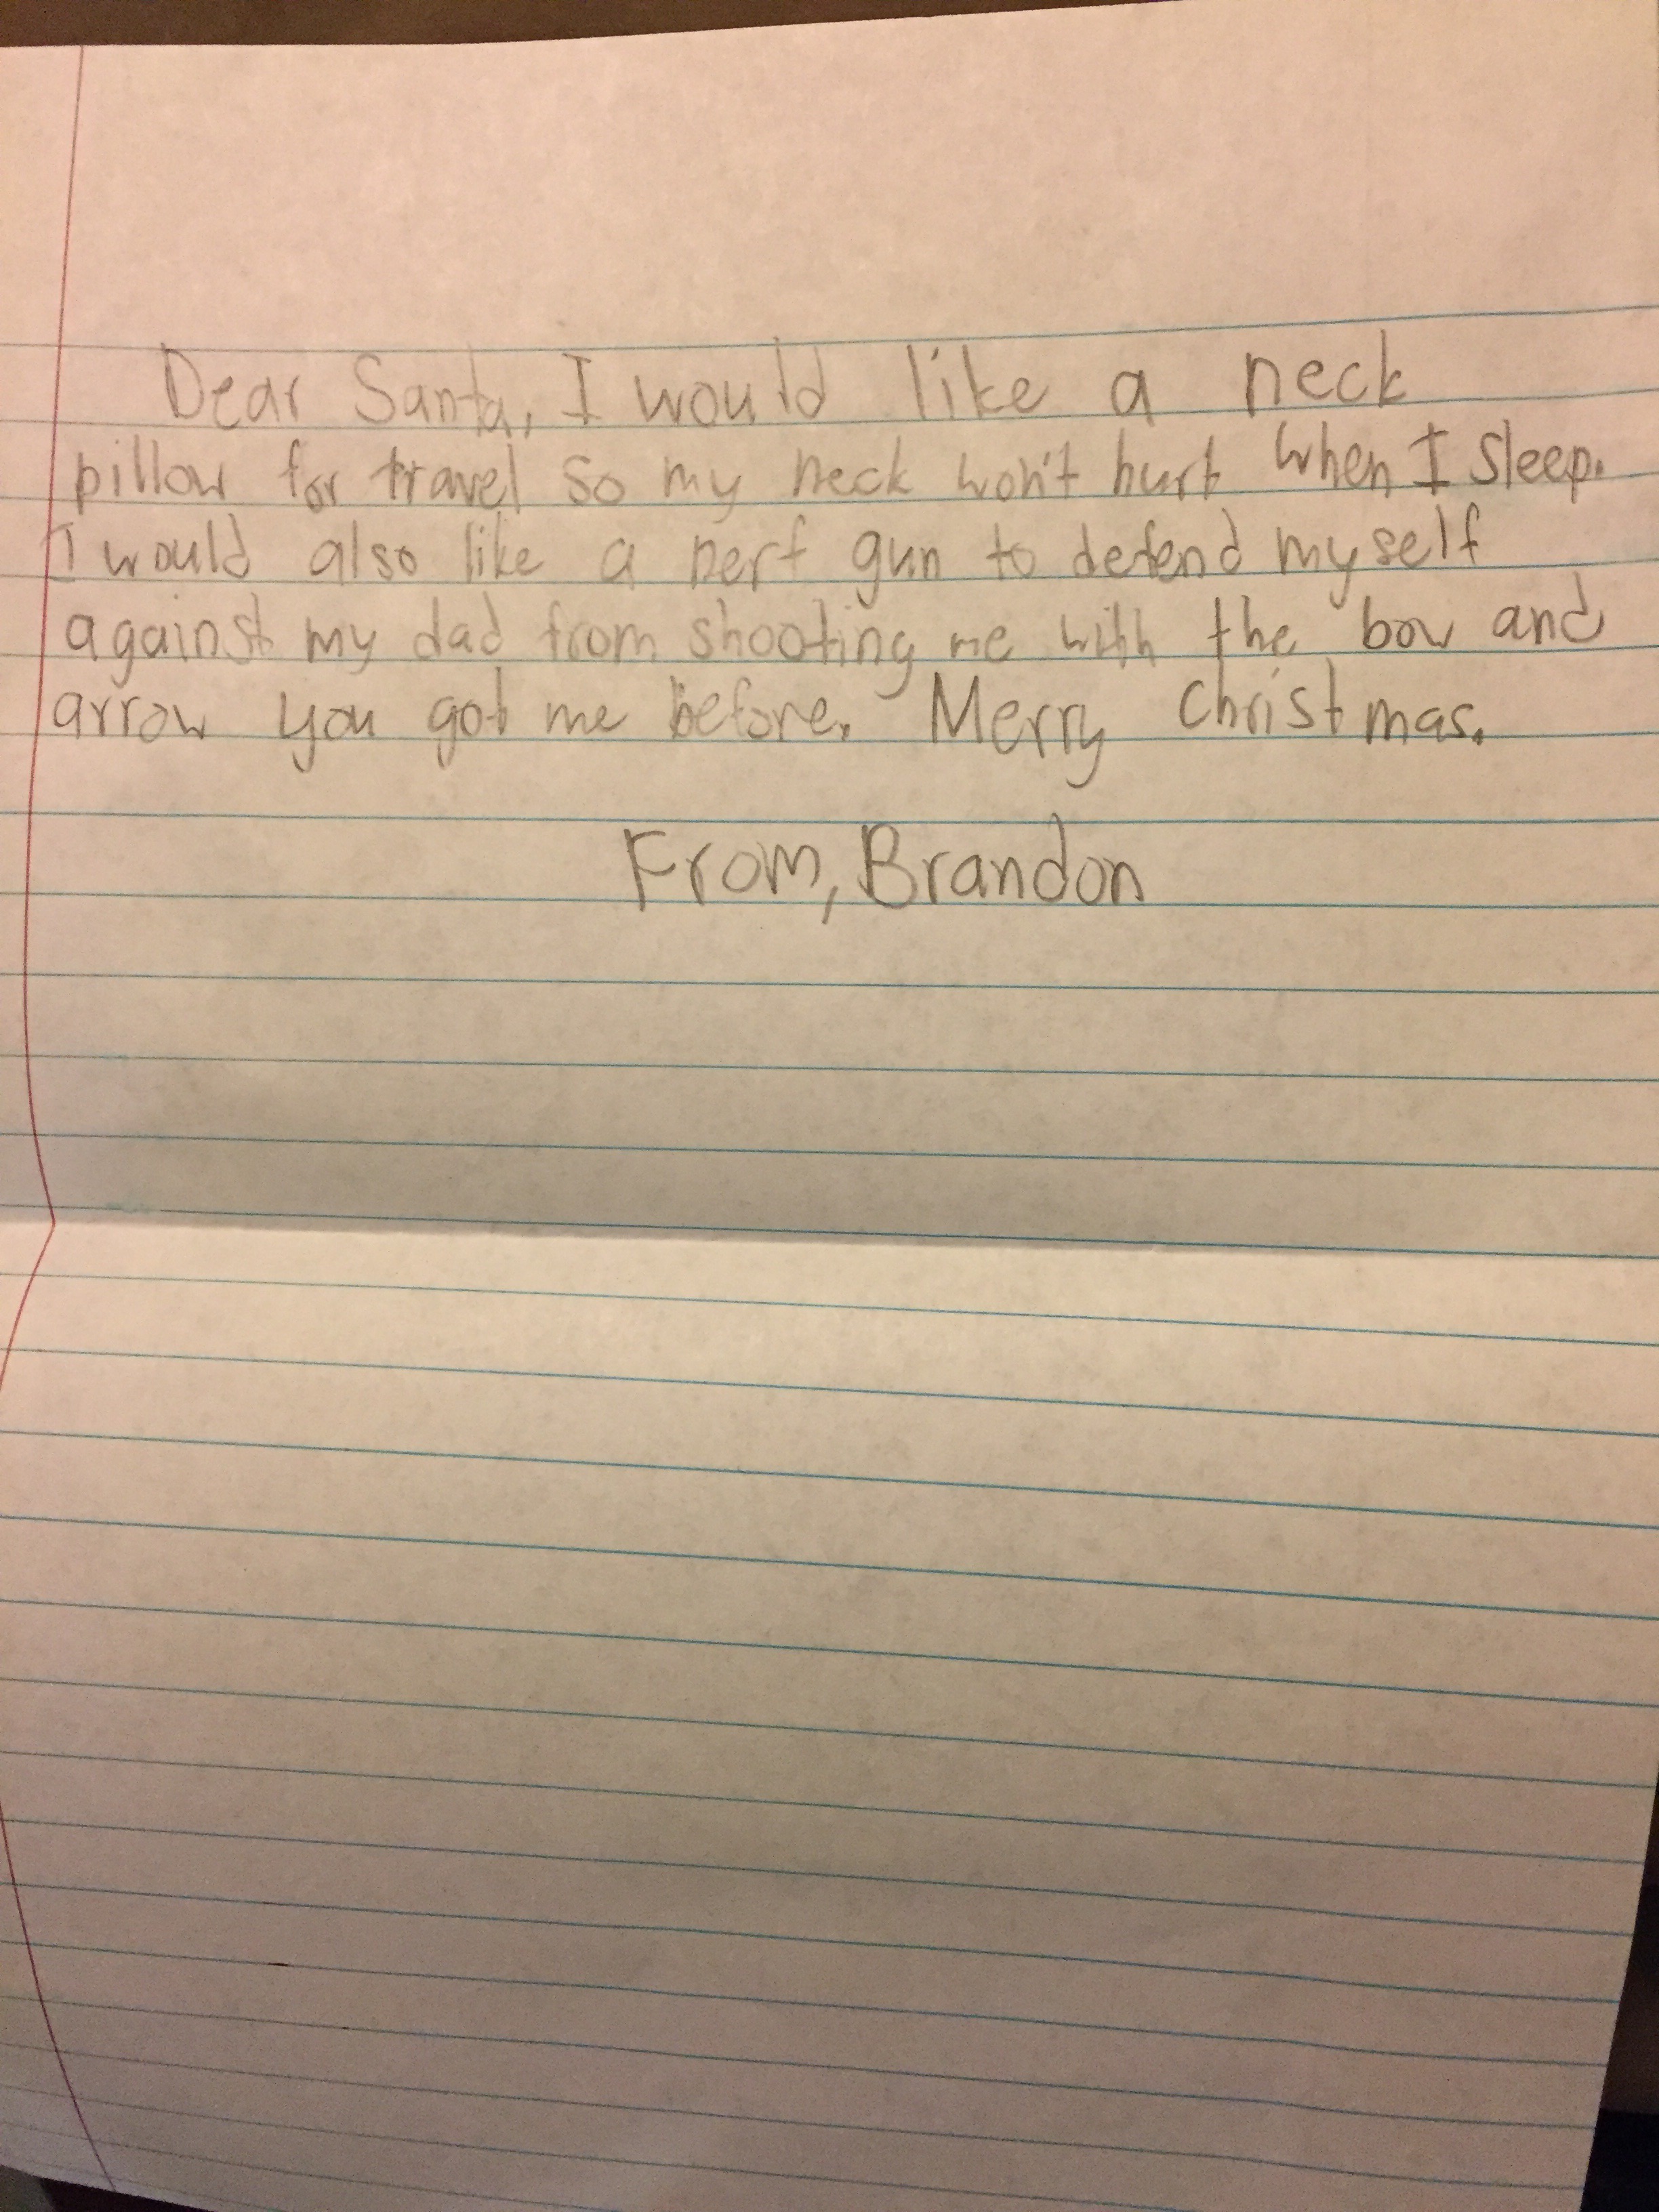 Dear Santa, I would like a neck
pillow for travel so my neck won't hurt when I sleep.
I would also like a nerf gun to defend myself
against my dad from shooting me with the bow and
arrow you got me before. Merry Christmas.
From, Brandon